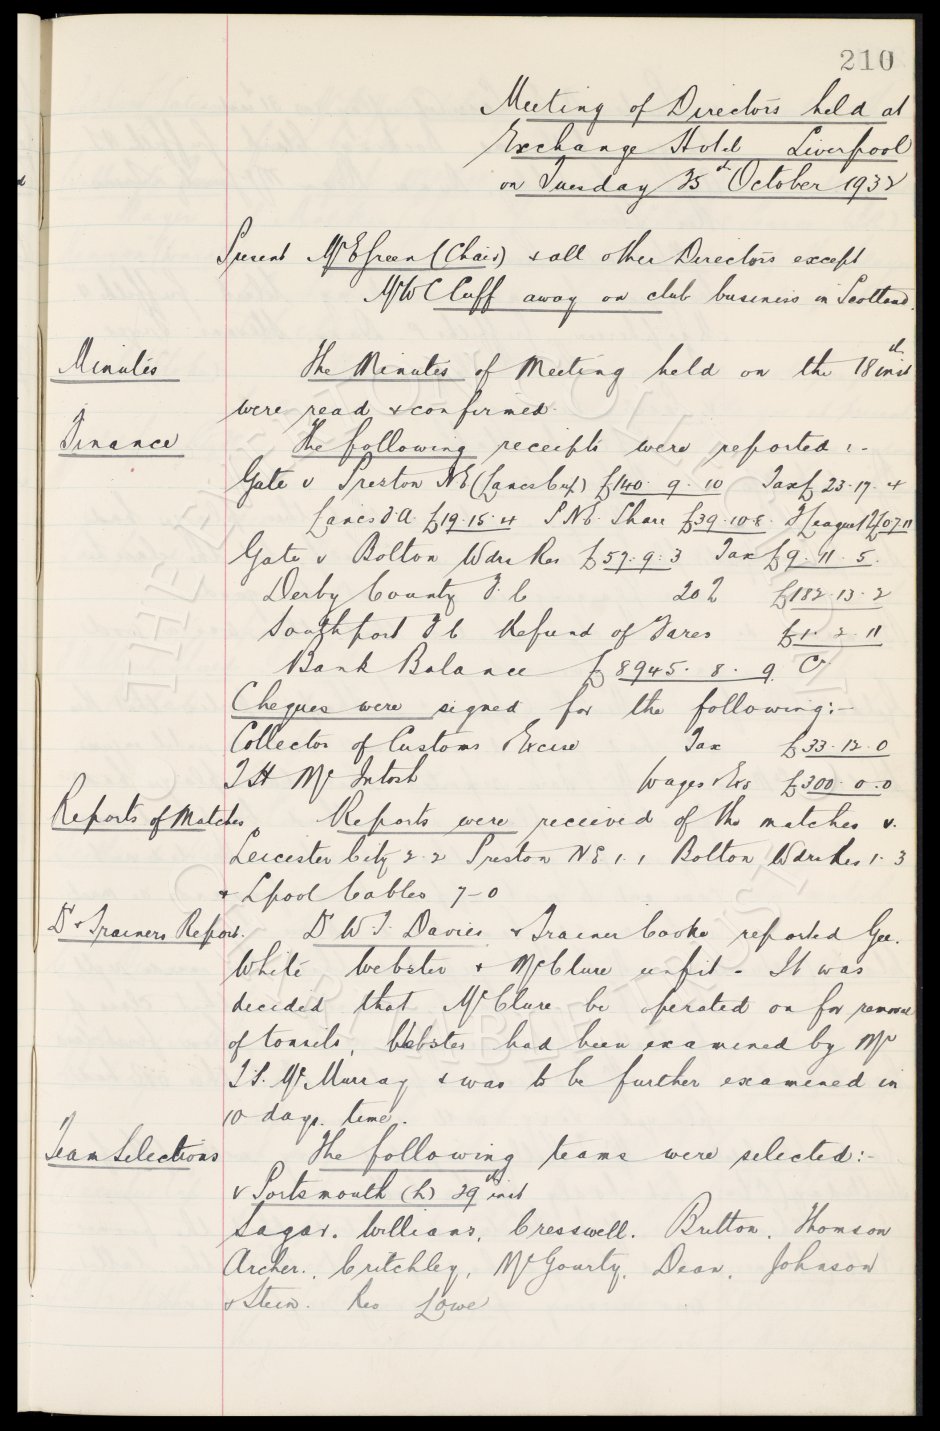 210
Meeting of Directors held at
Exchange Hotel Liverpool
on Tuesday 25th October 1932
Present Mr E Green (Chair) & all other Directors except
Mr W C Cuff away on club business in Scotland.
Minutes The Minutes of Meeting held on the 18th inst
were read & confirmed.
Finance The following receipts were reported :-
Gate v Preston N E (Lancs Cup) £140. 9. 10 Tax £23. 17. 4
Lancs F A. £19. 15. 4 P N E. Share £39. 10. 8. F League
Gate v Bolton Wdrs Res £57. 9. 3 Tax £9. 11. 5.
Derby County F. C 20% £182. 13. 2
Southport F C Refund of Fares £1. 2. 11
Bank Balance £8945. 8. 9. Cr.
Cheques were signed for the following:-
Collector of Customs Excise Tax £33. 12. 0
T H McIntosh Wages & Exs £300. 0. 0
Reports of Matches Reports were received of the matches v.
Leicester City 2. 2 Preston N E 1. 1 Bolton Wdrs Res 1. 3
& Lpool Cables 7-0
Dr & Trainers Report. Dr W. F. Davies & Trainer Cooke reported Gee.
White Webster & McClure unfit - It was
decided that McClure be operated on for removal
of tonsils, Webster had been examined by Mr
T. P. McMurray & was to be further examined in
10 days. time.
Team Selections The following teams were selected:-
v Portsmouth (h) 29th inst
Sagar. Williams, Cresswell. Britton. Thomson
Archer., Critchley, McGourty, Dean, Johnson
& Stein. Res Lowe